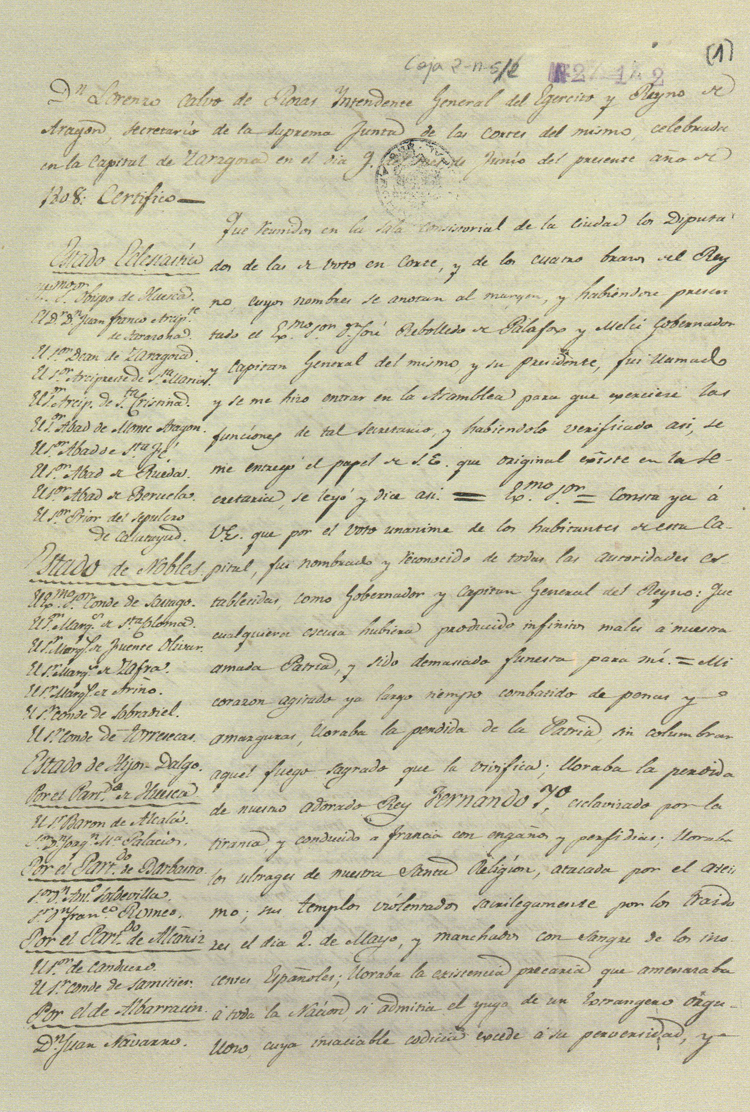 Caja 2-11-5/2
(1)
Dn. Lorenzo Calvo de Rozas Yntendente General del Egercito y Reyno de
Aragon, Secretario de la Suprema Junta de las Cortes del mismo, celebrada
en la Capital de Zaragoza en el dia 9 de mes de Junio del presente año de
1808: Certifico
Estado Eclesiastico
Obispo de Huesca
Dn. Juan Franco Arcip.te
de Tarazona
El Sor. Dean de Zaragoza
El Sor. Arcipreste de Sta. Maria
El Sr. Arcip. de Sta. Cristina
El Sor. Abad de Monte Aragon
El Sor. Abad de Sta. Fé
El Sor. Abad de Rueda
El Sor. Abad de Beruela
El Sor. Prior del Sepulcro
de Calatayud
Estado de Nobles
El Exmo. Sor. Conde de Sastago
El Sor. Marq.s de Sta. Coloma
El Sor. Marq.s de Fuente Olivar
El Sor. Marq.s de Zafra
El Sor. Marq.s de Ariño
El Sor. Conde de Sobradiel
El Sor. Conde de Torresecas
Estado de Hijos-Dalgo
Por el Part.do de Huesca
El Sr. Baron de Alcalá
Sor. Dn. Joaq.n M.a Palacios
Por el Part.do de Barbastro
Sor. Dn. Ant.o Soldevilla
Sr. Dn. Fran.co Romeo
Por el Part.do de Alcañiz
El Sor. de Canduero
El Sr. Conde de Samitier
Por el de Albarracin
Dn. Juan Navarro
Que reunidos en la Sala consistorial de la ciudad los Diputa-
dos de las de voto en Corte, y de los cuatro brazos del Rey-
no cuyos nombres se anotan al margen, y habiendose presen-
tado el Exmo. Sor. Dn. José Rebolledo de Palafox y Melci Gobernador
y Capitan General del mismo y su presidente, fui llamado
y se me hizo entrar en la Asamblea para que exerciere las
funciones de tal Secretario, y habiendolo verificado asi, se
me entregó el papel de S.E. que original existe en la Se-
cretaria, se leyó y dice asi: = Exmo. Sor. = Consta ya á
V.E. que por el voto unanime de los habitantes de esta Ca-
pital, fui nombrado y reconocido de todas las autoridades es-
tablecidas, como Gobernador y Capitan General del Reyno: Que
cualquiera escusa hubiera producido infinitos males a nuestra
amada Patria, y sido demasiado funesta para mi. = Mi
corazon agitado ya largo tiempo combatido de penas y
amarguras, lloraba la perdida de la Patria sin columbrar
aquel fuego sagrado que la vivifica; lloraba la perdida
de nuestro adorado Rey Fernando 7º, esclavizado por la
tirania y conducido a francia con engaños y perfidias; lloraba
los ultrages de nuestra Santa Religion, atacada por el ateis-
mo; sus templos violentados sacrilegamente por los traido-
res el dia 2 de Mayo, y manchados con sangre de los ino-
centes Españoles; lloraba la existencia precaria que amenazaba
á toda la Nacion si admitia el yugo de un estrangero orgu-
lloso, cuya insaciable codicia excede a su perversidad, y